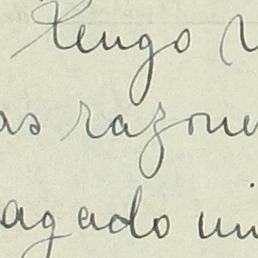 Tengo
as razone
agado mi